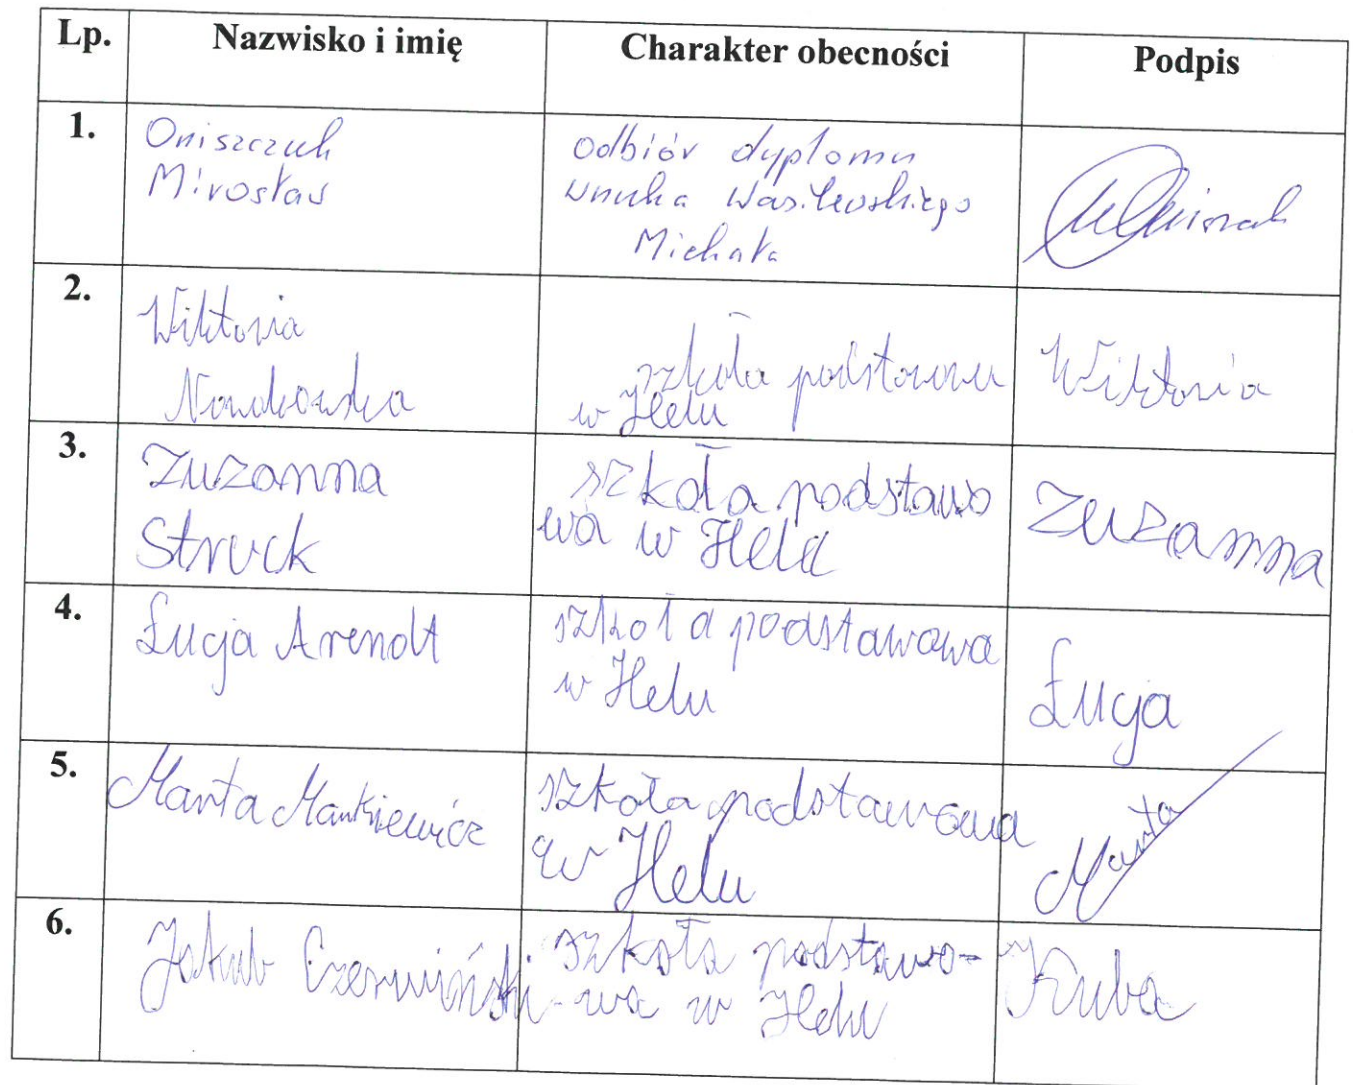 Lp. Nazwisko i imię Charakter obecności Podpis
1. Oniszczuk
Mirosław
odbiór dyplomu
wnuka Wasilewskiego
Michała
2. Wiktoria
Nowakowska
szkoła podstawowa
w Helu
Wiktoria
3. Zuzanna
Struck
szkoła podstawo
wa w Helu
Zuzanna
4. Łucja Arendt
szkoła podstawowa
w Helu
Łucja
5. Marta Mankiewicz
szkoła podstawowa
w Helu
Marta
6. Jakub Czerwiński
szkoła podstawo-
-wa w Helu
Kuba